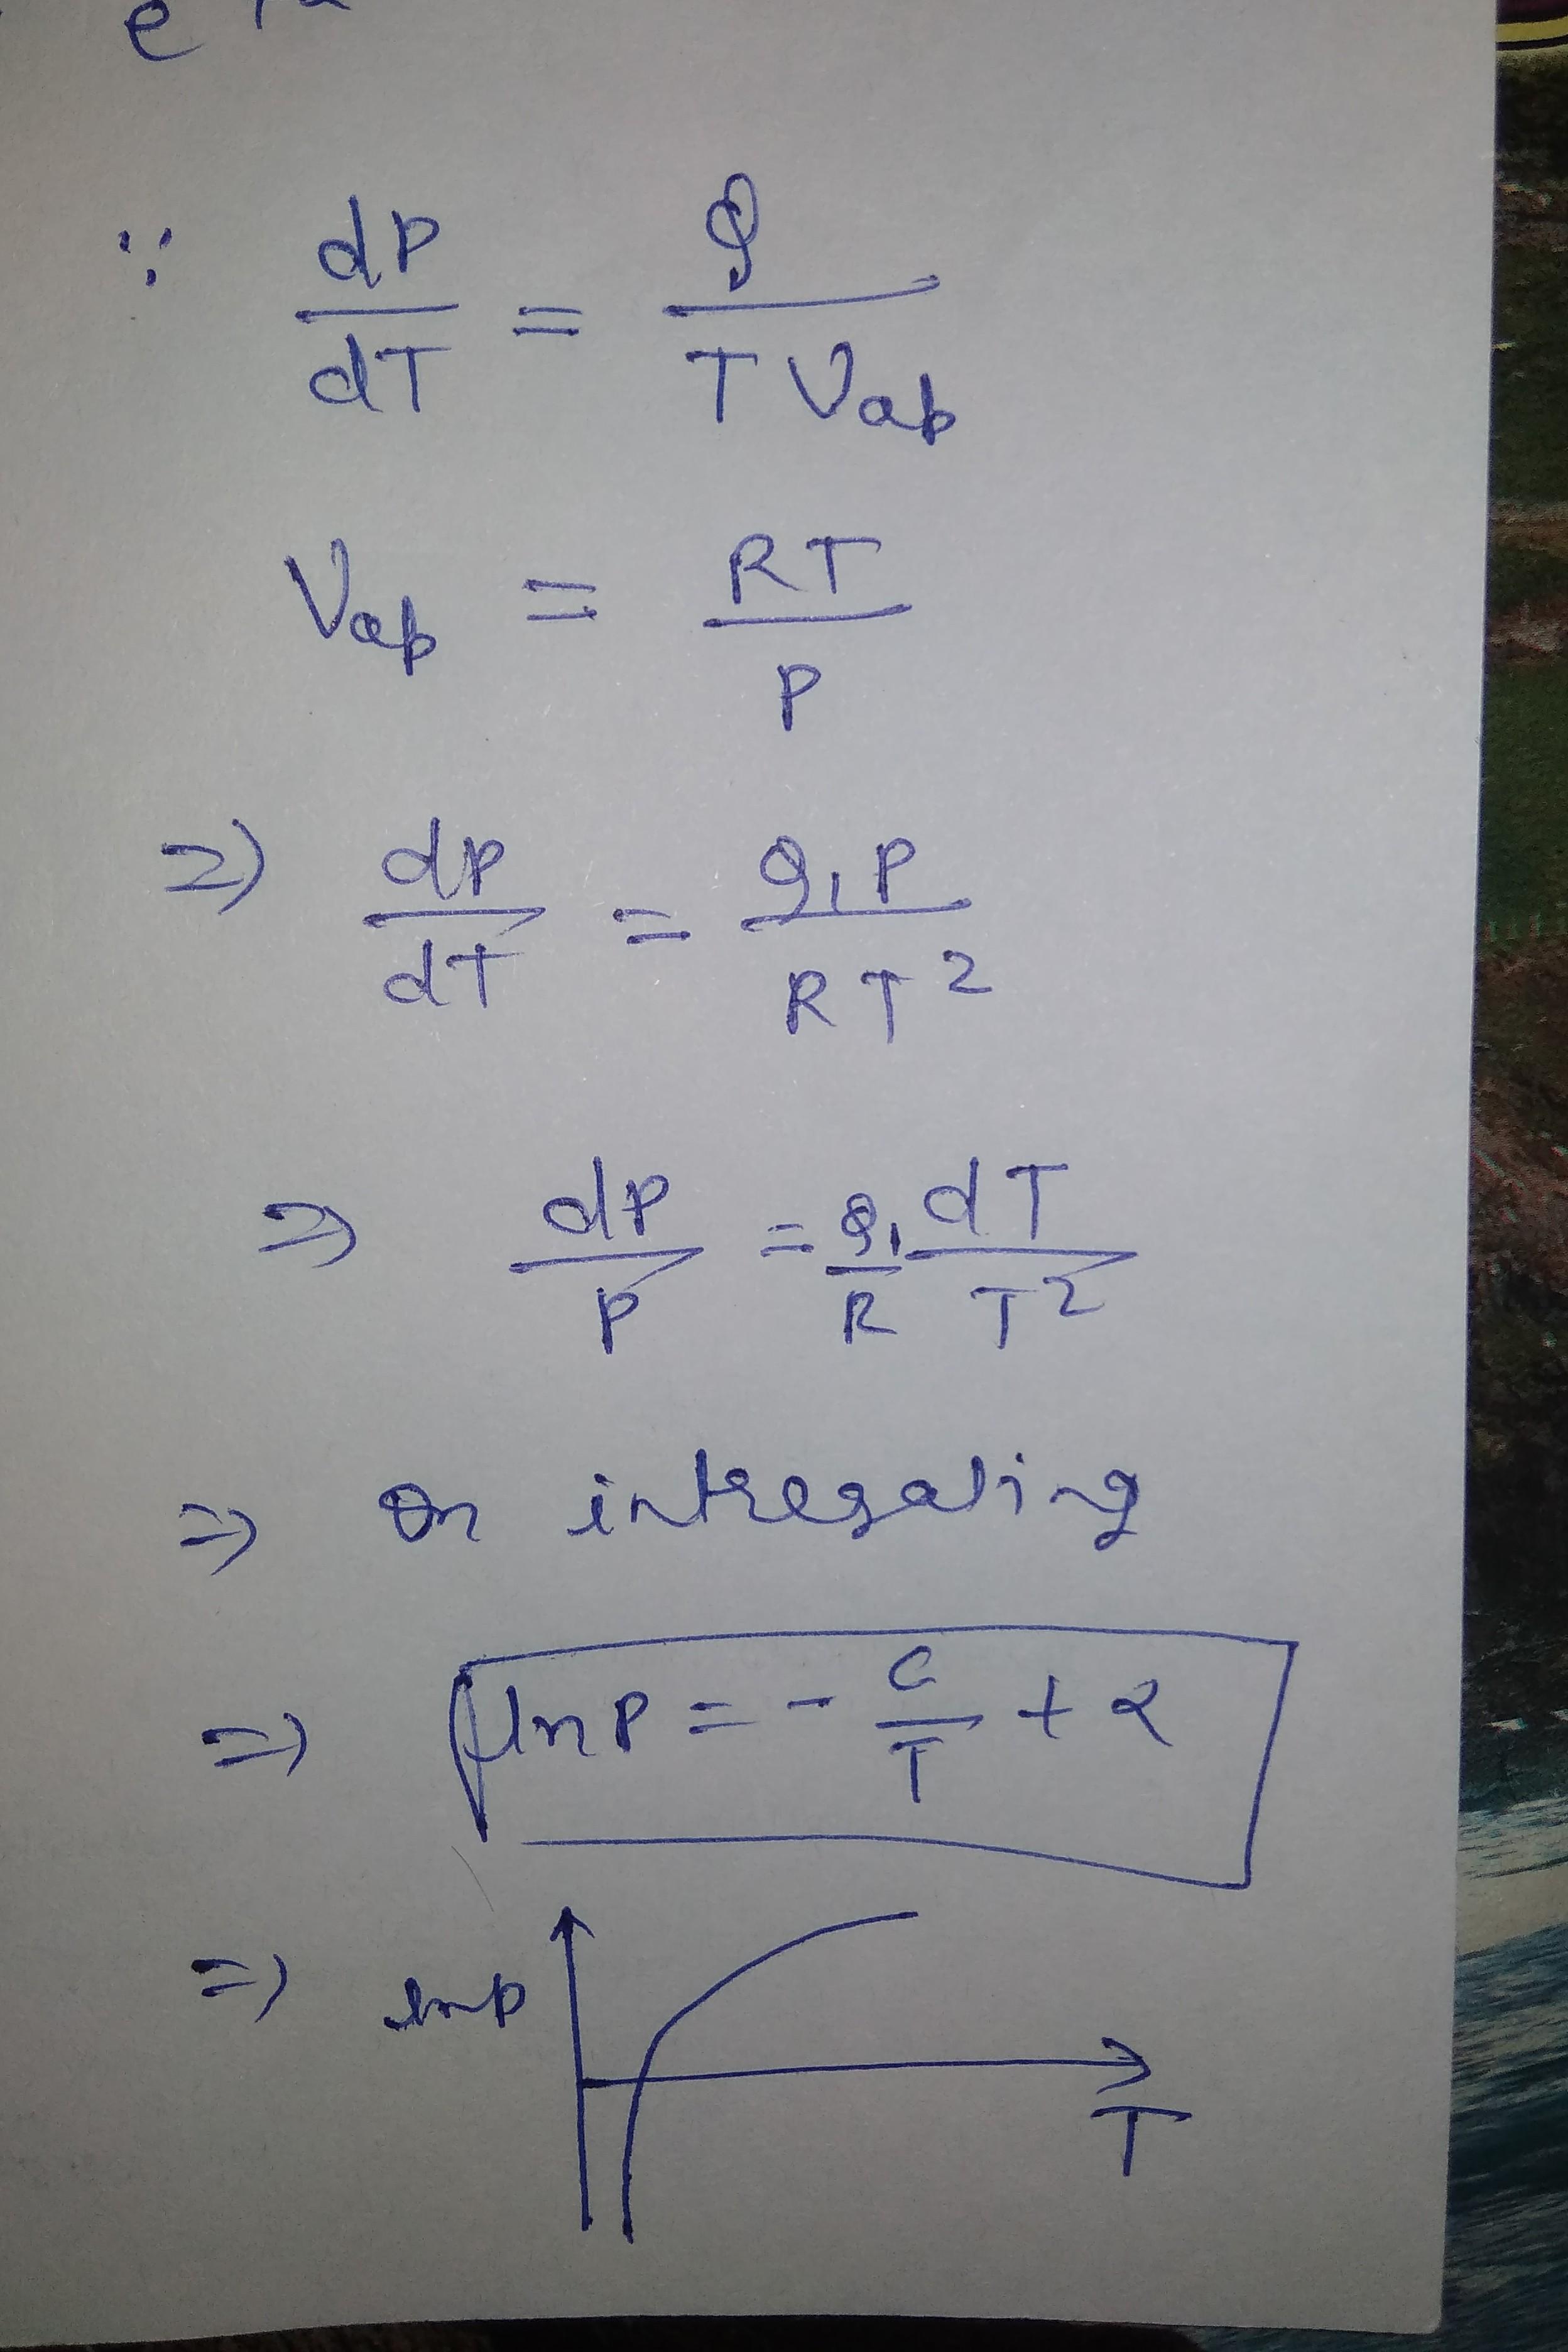 e
∵ dP/dT = Q/(T Vap)
Vap = RT/P
⇒ dP/dT = Q₁P/(RT²)
⇒ dP/P = Q₁/R dT/T²
⇒ On intregating
⇒ lnP = - C/T + α
⇒ lnp
T